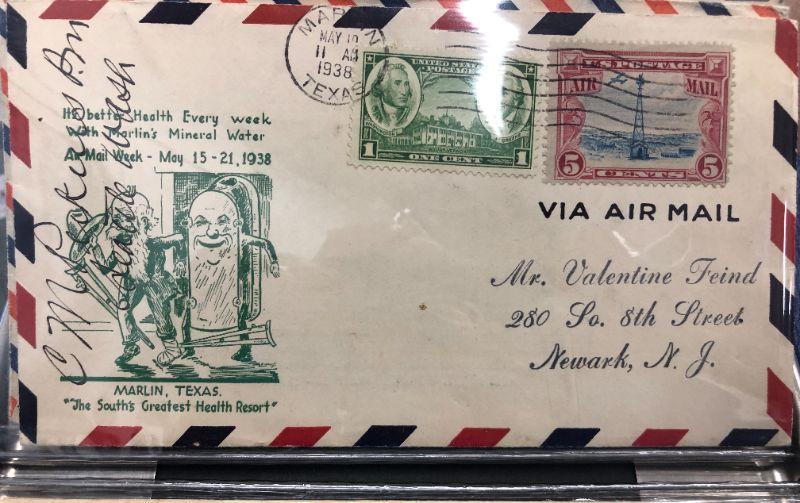 MARLIN
MAY 19
11 AM
1938
TEXAS
UNITED STATES
POSTAGE
1
1
ONE CENT
U.S. POSTAGE
AIR MAIL
5
5
CENTS
VIA AIR MAIL
Mr. Valentine Feind
280 So. 8th Street
Newark, N. J.
Its better Health Every week
With Marlin's Mineral Water
Air Mail Week - May 15-21, 1938
MARLIN, TEXAS.
"The South's Greatest Health Resort"
C M
P.M.